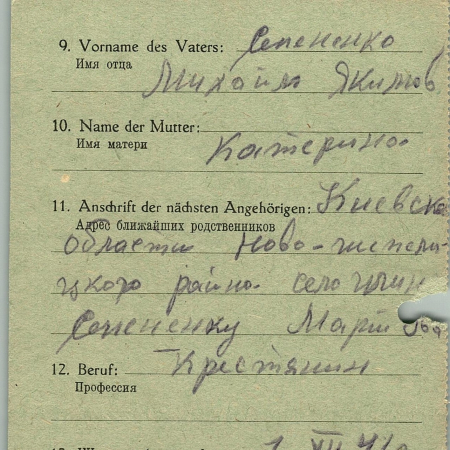 9. Vorname des Vaters: Семененко
Имя отца
Михайло Якимов
10. Name der Mutter:
Имя матери
Катерина
11. Anschrift der nächsten Angehörigen: Киевска
Адрес ближайших родственников
области Ново-
цкого район село
Семененку Марии
12. Beruf: Крестянин
Профессия
1 XII 41